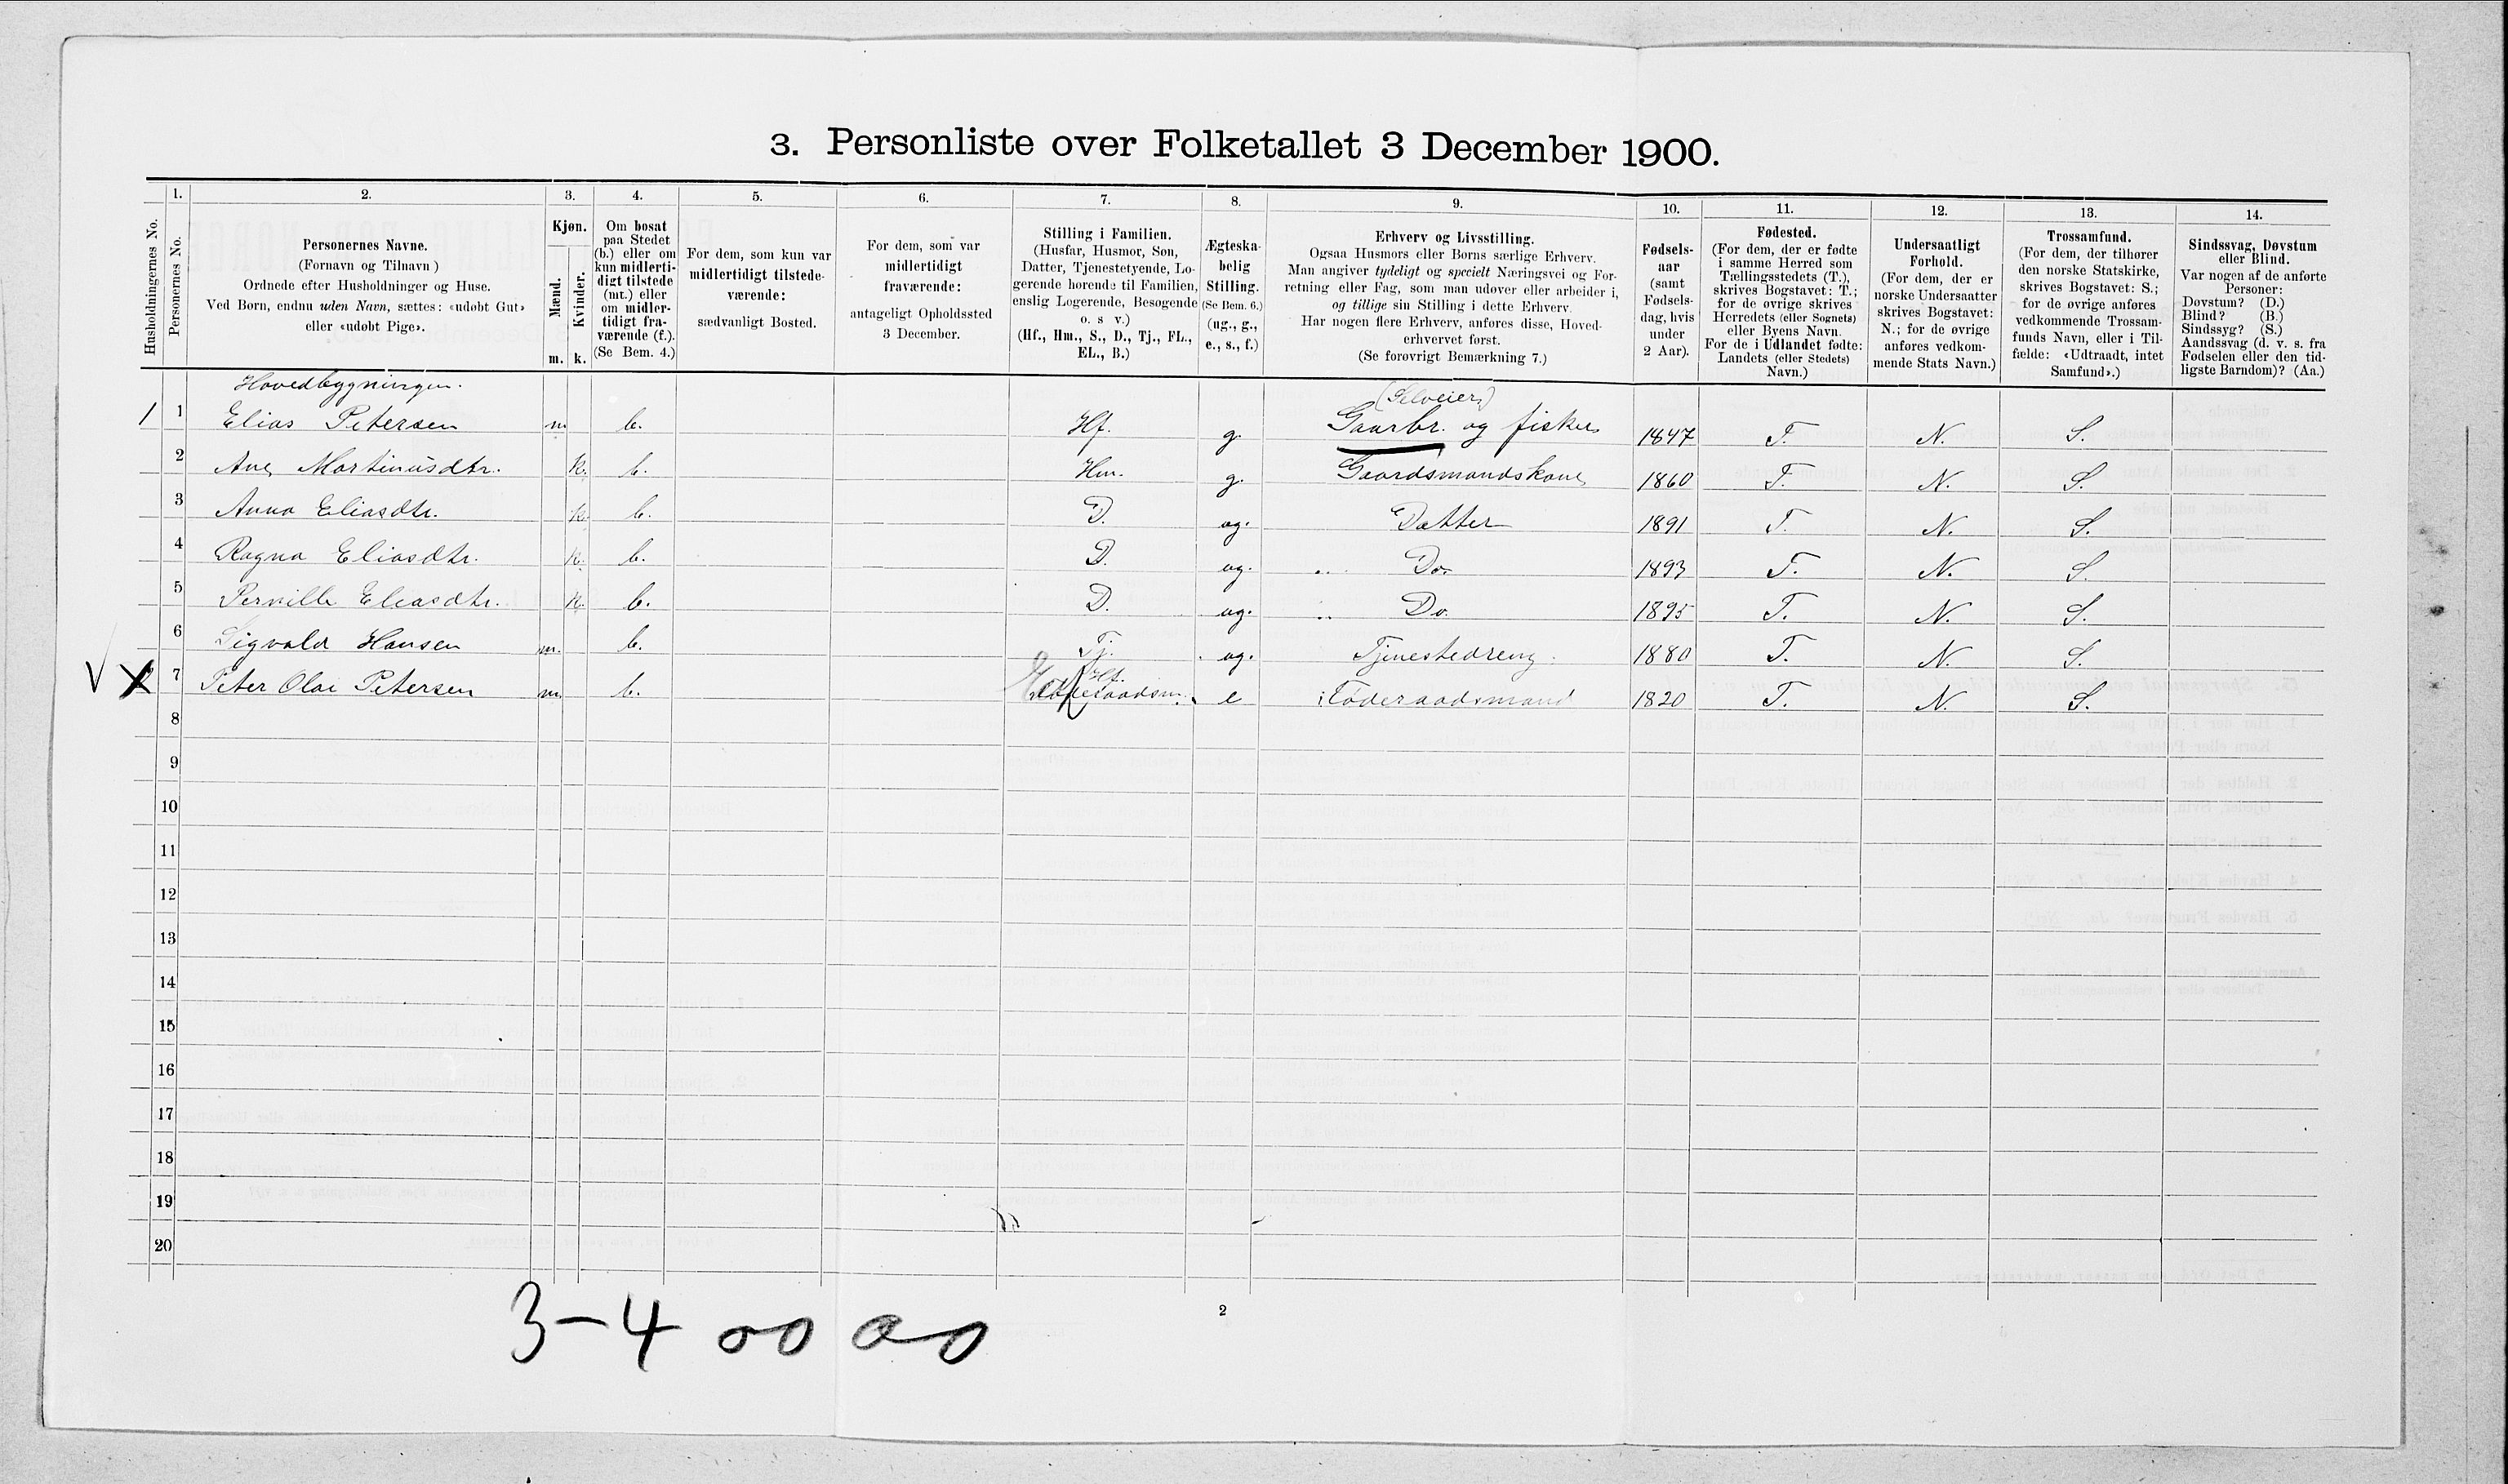 3. Personliste over Folketallet 3 December 1900.
Husholdningernes No.
1. Personernes No.
2.
Personernes Navne.
(Fornavn og Tilnavn)
Ordnede efter Husholdninger og Huse.
Ved Børn, endnu uden Navn, sættes: «udøbt Gut»
eller «udøbt Pige».
3.
Kjøn.
Mænd.
Kvinder.
m. k.
4.
Om bosat
paa Stedet
(b.) eller om
kun midlerti-
digt tilstede
(mt.) eller
om midler-
tidigt fra-
værende (f.).
(Se Bem. 4.)
5.
For dem, som kun var
midlertidigt tilstede-
værende:
sædvanligt Bosted.
6.
For dem, som var
midlertidigt
fraværende:
antageligt Opholdssted
3 December.
7.
Stilling i Familien.
(Husfar, Husmor, Søn,
Datter, Tjenestetyende, Lo-
gerende hørende til Familien,
enslig Logerende, Besøgende
o. s v.)
(Hf., Hm., S., D., Tj., FL.,
EL., B.)
8.
Ægteska-
belig
Stilling.
(Se Bem. 6.)
(ug., g.,
e., s., f.)
9.
Erhverv og Livsstilling.
Ogsaa Husmors eller Børns særlige Erhverv.
Man angiver tydeligt og specielt Næringsvei og For-
retning eller Fag, som man udøver eller arbeider i,
og tillige sin Stilling i dette Erhverv.
Har nogen flere Erhverv, anføres disse, Hoved-
erhvervet først.
(Se forøvrigt Bemærkning 7.)
10.
Fødsels-
aar
(samt
Fødsels-
dag, hvis
under
2 Aar).
11.
Fødested.
(For dem, der er fødte
i samme Herred som
Tællingsstedets (T.),
skrives Bogstavet: T.;
for de øvrige skrives
Herredets (eller Sognets)
eller Byens Navn.
For de i Udlandet fødte:
Landets (eller Stedets)
Navn.)
12.
Undersaatligt
Forhold.
(For dem, der er
norske Undersaatter
skrives Bogstavet:
N.; for de øvrige
anføres vedkom-
mende Stats Navn.)
13.
Trossamfund.
(For dem, der tilhører
den norske Statskirke,
skrives Bogstavet: S.;
for de øvrige anføres
vedkommende Trossam-
funds Navn, eller i Til-
fælde: «Udtraadt, intet
Samfund».)
14.
Sindssvag, Døvstum
eller Blind.
Var nogen af de anførte
Personer:
Døvstum? (D.)
Blind? (B.)
Sindssyg? (S.)
Aandssvag (d. v. s. fra
Fødselen eller den tid-
ligste Barndom)? (Aa.)
Hovedbygningen.
(Selveier)
1 1 Elias Petersen m b. Hf. g. Gaarbr. og fisker 1847 T. N. S.
2 Ane Martinusdtr. k. b. Hm. g. Gaardsmandskone 1860 T. N. S.
3 Anna Eliasdtr. k. b. D. ug. Datter 1891 T. N. S.
4 Ragna Eliasdtr. k. b. D. ug. „ Do. 1893 T. N. S.
5 Pernille Eliasdtr. k. b. D. ug. „ Do. 1895 T. N. S.
6 Sigvald Hansen m. b. Tj. ug. Tjenestedreng. 1880 T. N. S.
V X 7 Peter Olai Petersen m b. Hf. e Føderaadsmand 1820 T. N. S.
8
9
10
11
12
13
14
15
16
17
18
19
20
2
3-4 00 00